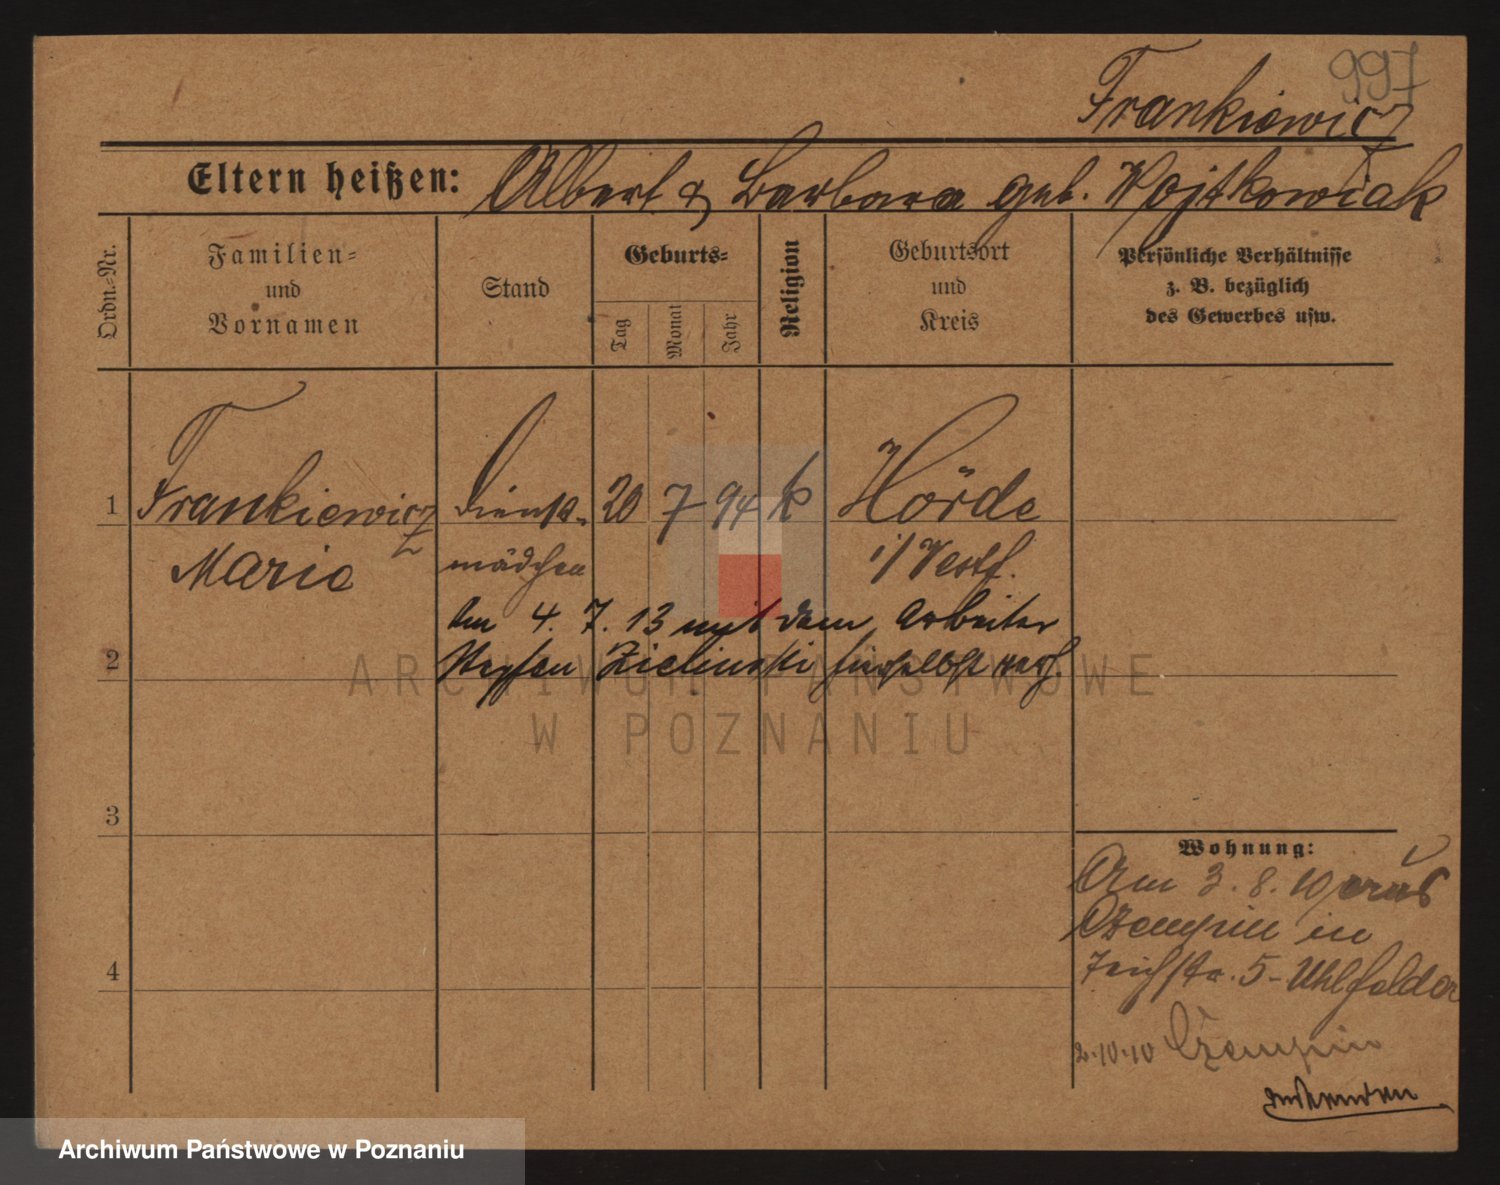 997
Frankiewicz
Eltern heißen: Albert & Barbara geb. Wojtkowiak
Ordn.-Nr.
Familien- und Vornamen
Stand
Geburts-
Tag
Monat
Jahr
Religion
Geburtsort und Kreis
Persönliche Verhältnisse z. B. bezüglich des Gewerbes usw.
1 Frankiewicz Dienst- 20 7 94 k Hörde
Marie mädchen i/Westf.
Am 4. 7. 13 mit dem Arbeiter
2 Stephan Zielinski hierselbst verh.
ARCHIWUM PAŃSTWOWE
W POZNANIU
3
Wohnung:
Am 3. 8. 10 aus
Czempin in
4 Teichstr. 5 - Uhlfelder
2.10.10 Czempin
Archiwum Państwowe w Poznaniu